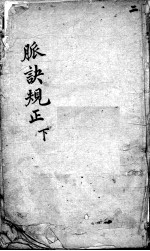 二
脈訣規正
下